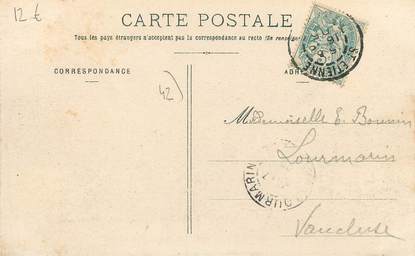 12 €
CARTE POSTALE
Tous les pays étrangers n'acceptent pas la correspondance au recto (Se renseigner
CORRESPONDANCE
ADR
ST ETIENNE
42)
Mademoiselle E. Bonnin
Lourmarin
LOURMARIN
Vaucluse